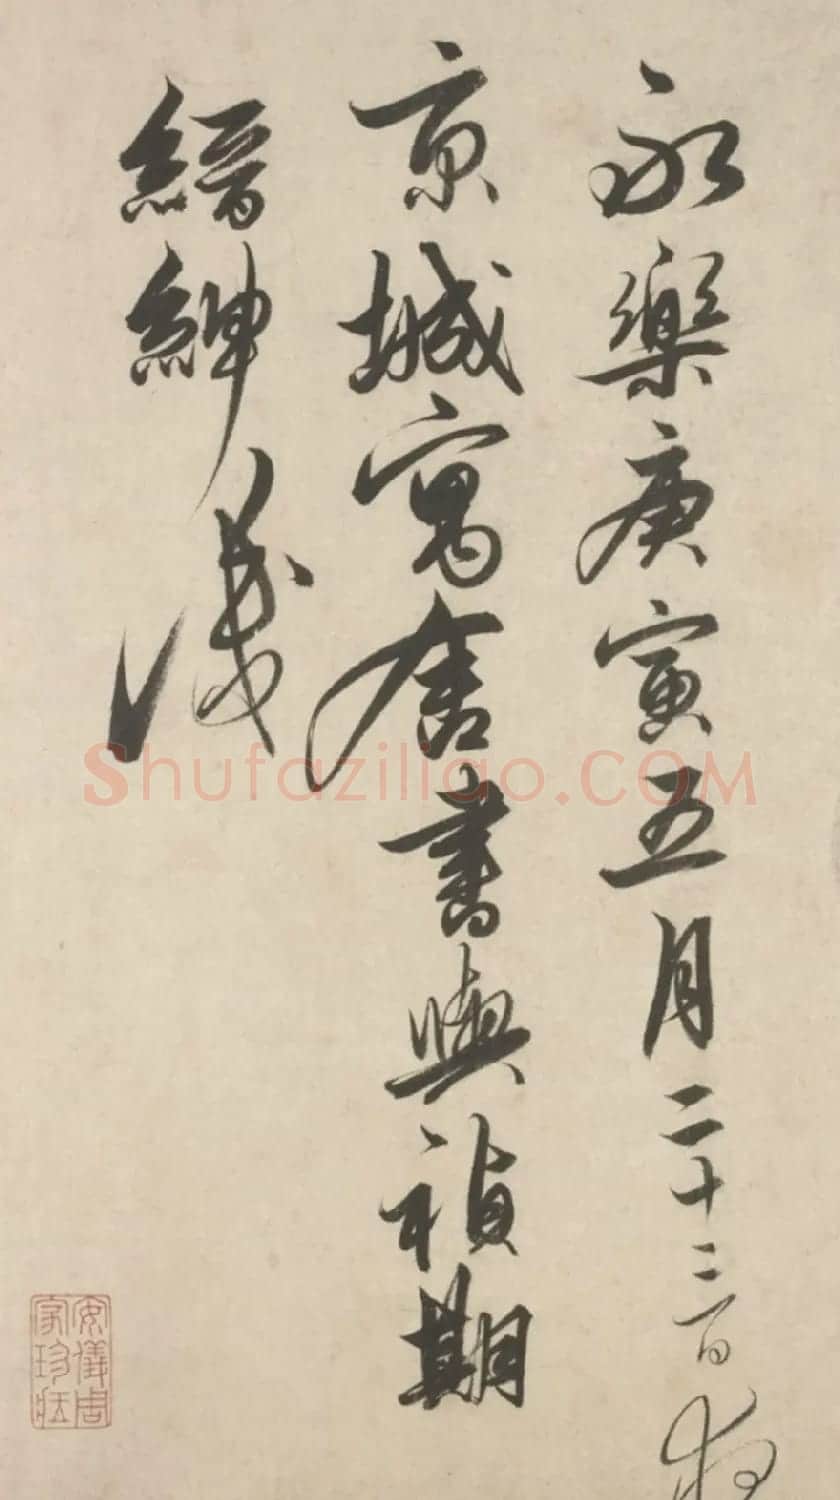 永樂庚寅五月二十三日
京城寓舍書與禎期
縉紳識
安儀周
家珍藏
Shufaziliao.COM